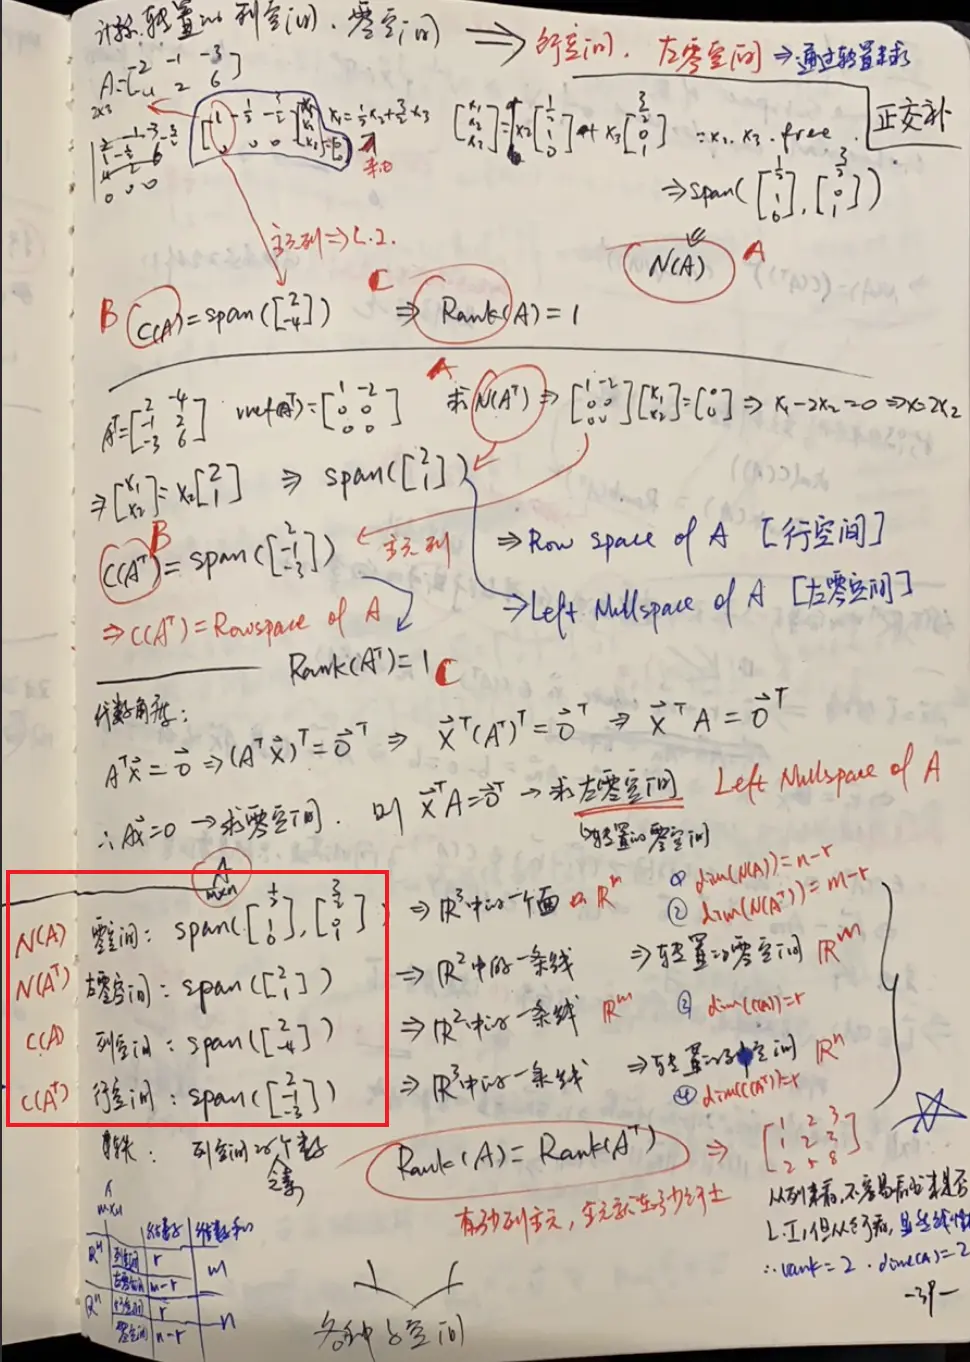 转置 列空间、零空间 ⇒ 行空间、左零空间 ⇒通过转置来求
A=[2 -1 -3
-4 2 6]
2x3
[1 -1/2 -3/2
0 0 0][x1 x2 x3]=[0 0] x1=1/2x2+3/2x3 [x1 x2 x3]=x2[1/2 1 0]+x3[3/2 0 1] x2、x3、free
正交补
⇒span([1/2 1 0],[3/2 0 1])
主元列⇒L.I.
N(A) A
B C(A)=span([2 -4]) ⇒ C Rank(A)=1
A
Aᵀ=[2 -4
-1 2
-3 6] rref(Aᵀ)=[1 -2
0 0
0 0] 求N(Aᵀ)⇒[1 -2
0 0
0 0][x1 x2]=[0 0]⇒x1-2x2=0⇒x1=2x2
⇒[x1 x2]=x2[2 1] ⇒ span([2 1])
B C(Aᵀ)=span([2 -1 -3]) 主元列 ⇒Row space of A [行空间]
⇒Left Nullspace of A [左零空间]
⇒C(Aᵀ)=Rowspace of A
Rank(Aᵀ)=1 C
代数角度:
Aᵀx=0⇒(Aᵀx)ᵀ=0ᵀ ⇒ xᵀ(Aᵀ)ᵀ=0ᵀ ⇒ xᵀA=0ᵀ
∴Ax=0→求零空间. 则 xᵀA=0ᵀ→求左零空间 Left Nullspace of A
转置的零空间
A
mxn
N(A) 零空间: span([1/2 1 0],[3/2 0 1]) ⇒R³中的一个面 Rⁿ ① dim(N(A))=n-r
② dim(N(Aᵀ))=m-r
N(Aᵀ) 左零空间: span([2 1]) ⇒R²中的一条线 ⇒转置的零空间 Rᵐ
C(A) 列空间: span([2 -4]) ⇒R²中的一条线 Rᵐ ③ dim(C(A))=r
C(Aᵀ) 行空间: span([2 -1 -3]) ⇒R³中的一条线 ⇒转置的列空间 Rⁿ
④ dim(C(Aᵀ))=r
列空间 个数
Rank(A)=Rank(Aᵀ) ⇒ [1 2 3
1 2 3
2 5 8]
A
mxn
维数 维数和
Rᵐ 列空间 r m
左零空间 m-r
Rⁿ 行空间 r n
零空间 n-r
各种子空间
从列来看,不容易看出来是否
L.I,但从行看,
∴rank=2. dim(A)=2
-39-